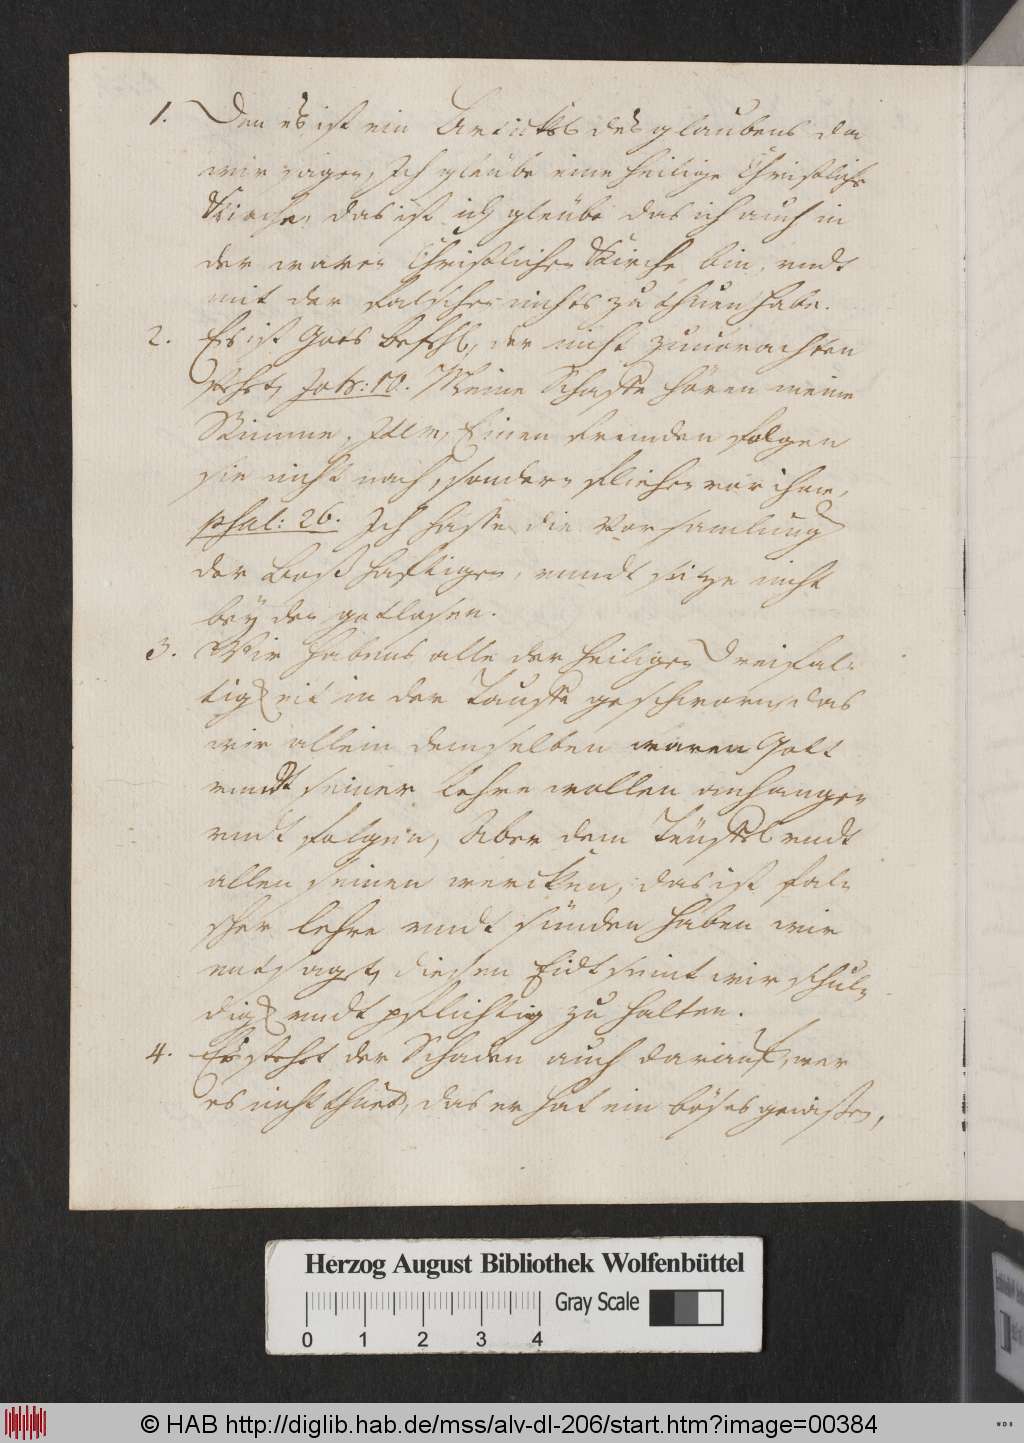 1. Den es ist ein Artickel des glaubens da
wir sagen, Ich gleube eine heilige Christliche
Kirche, das ist ich gleube das ich auch in
der waren Christlichen Kirche bin, undt
mit der falschen nichts zu thuen habe.
2. Es ist Gots befehl, der nicht zuuorachten
stehet, Joh: 10. Meine Schaffe hören meine
Stimme, Item, Einen frembden folgen
sie nicht nach, sondern fliehen vor ihme,
psal: 26. Ich hasse die Vorsamlung
der Boßhafftigen, unndt sitze nicht
bey den gotlosen.
3. Wir habens alle der heiligen Dreifal=
tigkeit in der Tauffe geschworn, das
wir allein demselben waren Gott
unndt seiner lehre wollen anhangen
undt folgen, Aber dem Teuffel undt
allen seinen wercken, das ist fal=
scher lehre undt sünden haben wir
entsagt, diesen Eidt seint wir schul=
dig undt pflichtig zu halten.
4. Es stehet der Schaden auch darauf, wer
es nicht thuet, das er hat ein böses gewissen,
Herzog August Bibliothek Wolfenbüttel
Gray Scale
0 1 2 3 4
© HAB http://diglib.hab.de/mss/alv-dl-206/start.htm?image=00384